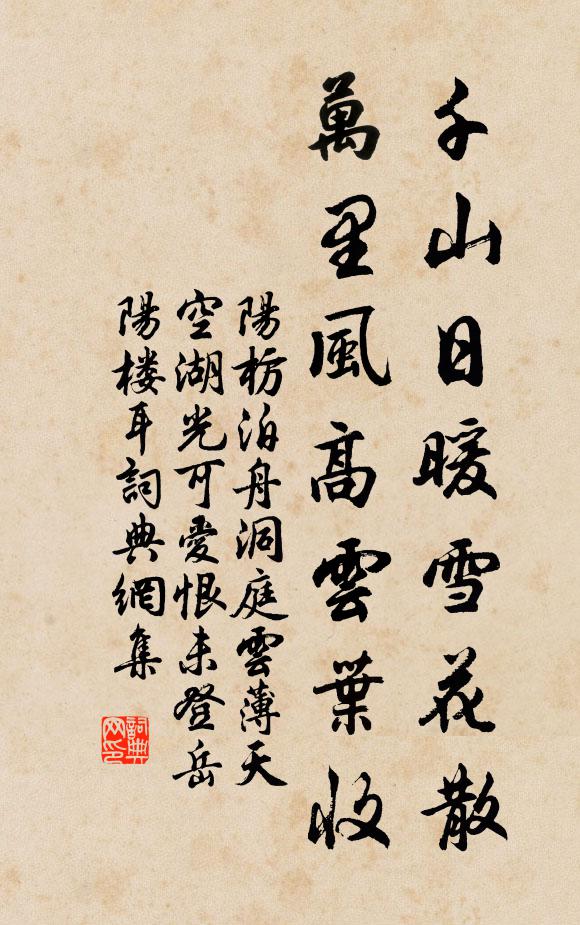 千山日暖雪花散
萬里風高雲葉收
陽枋泊舟洞庭雲薄天
空湖光可愛恨未登岳
陽楼耳詞典網集
詞典网印